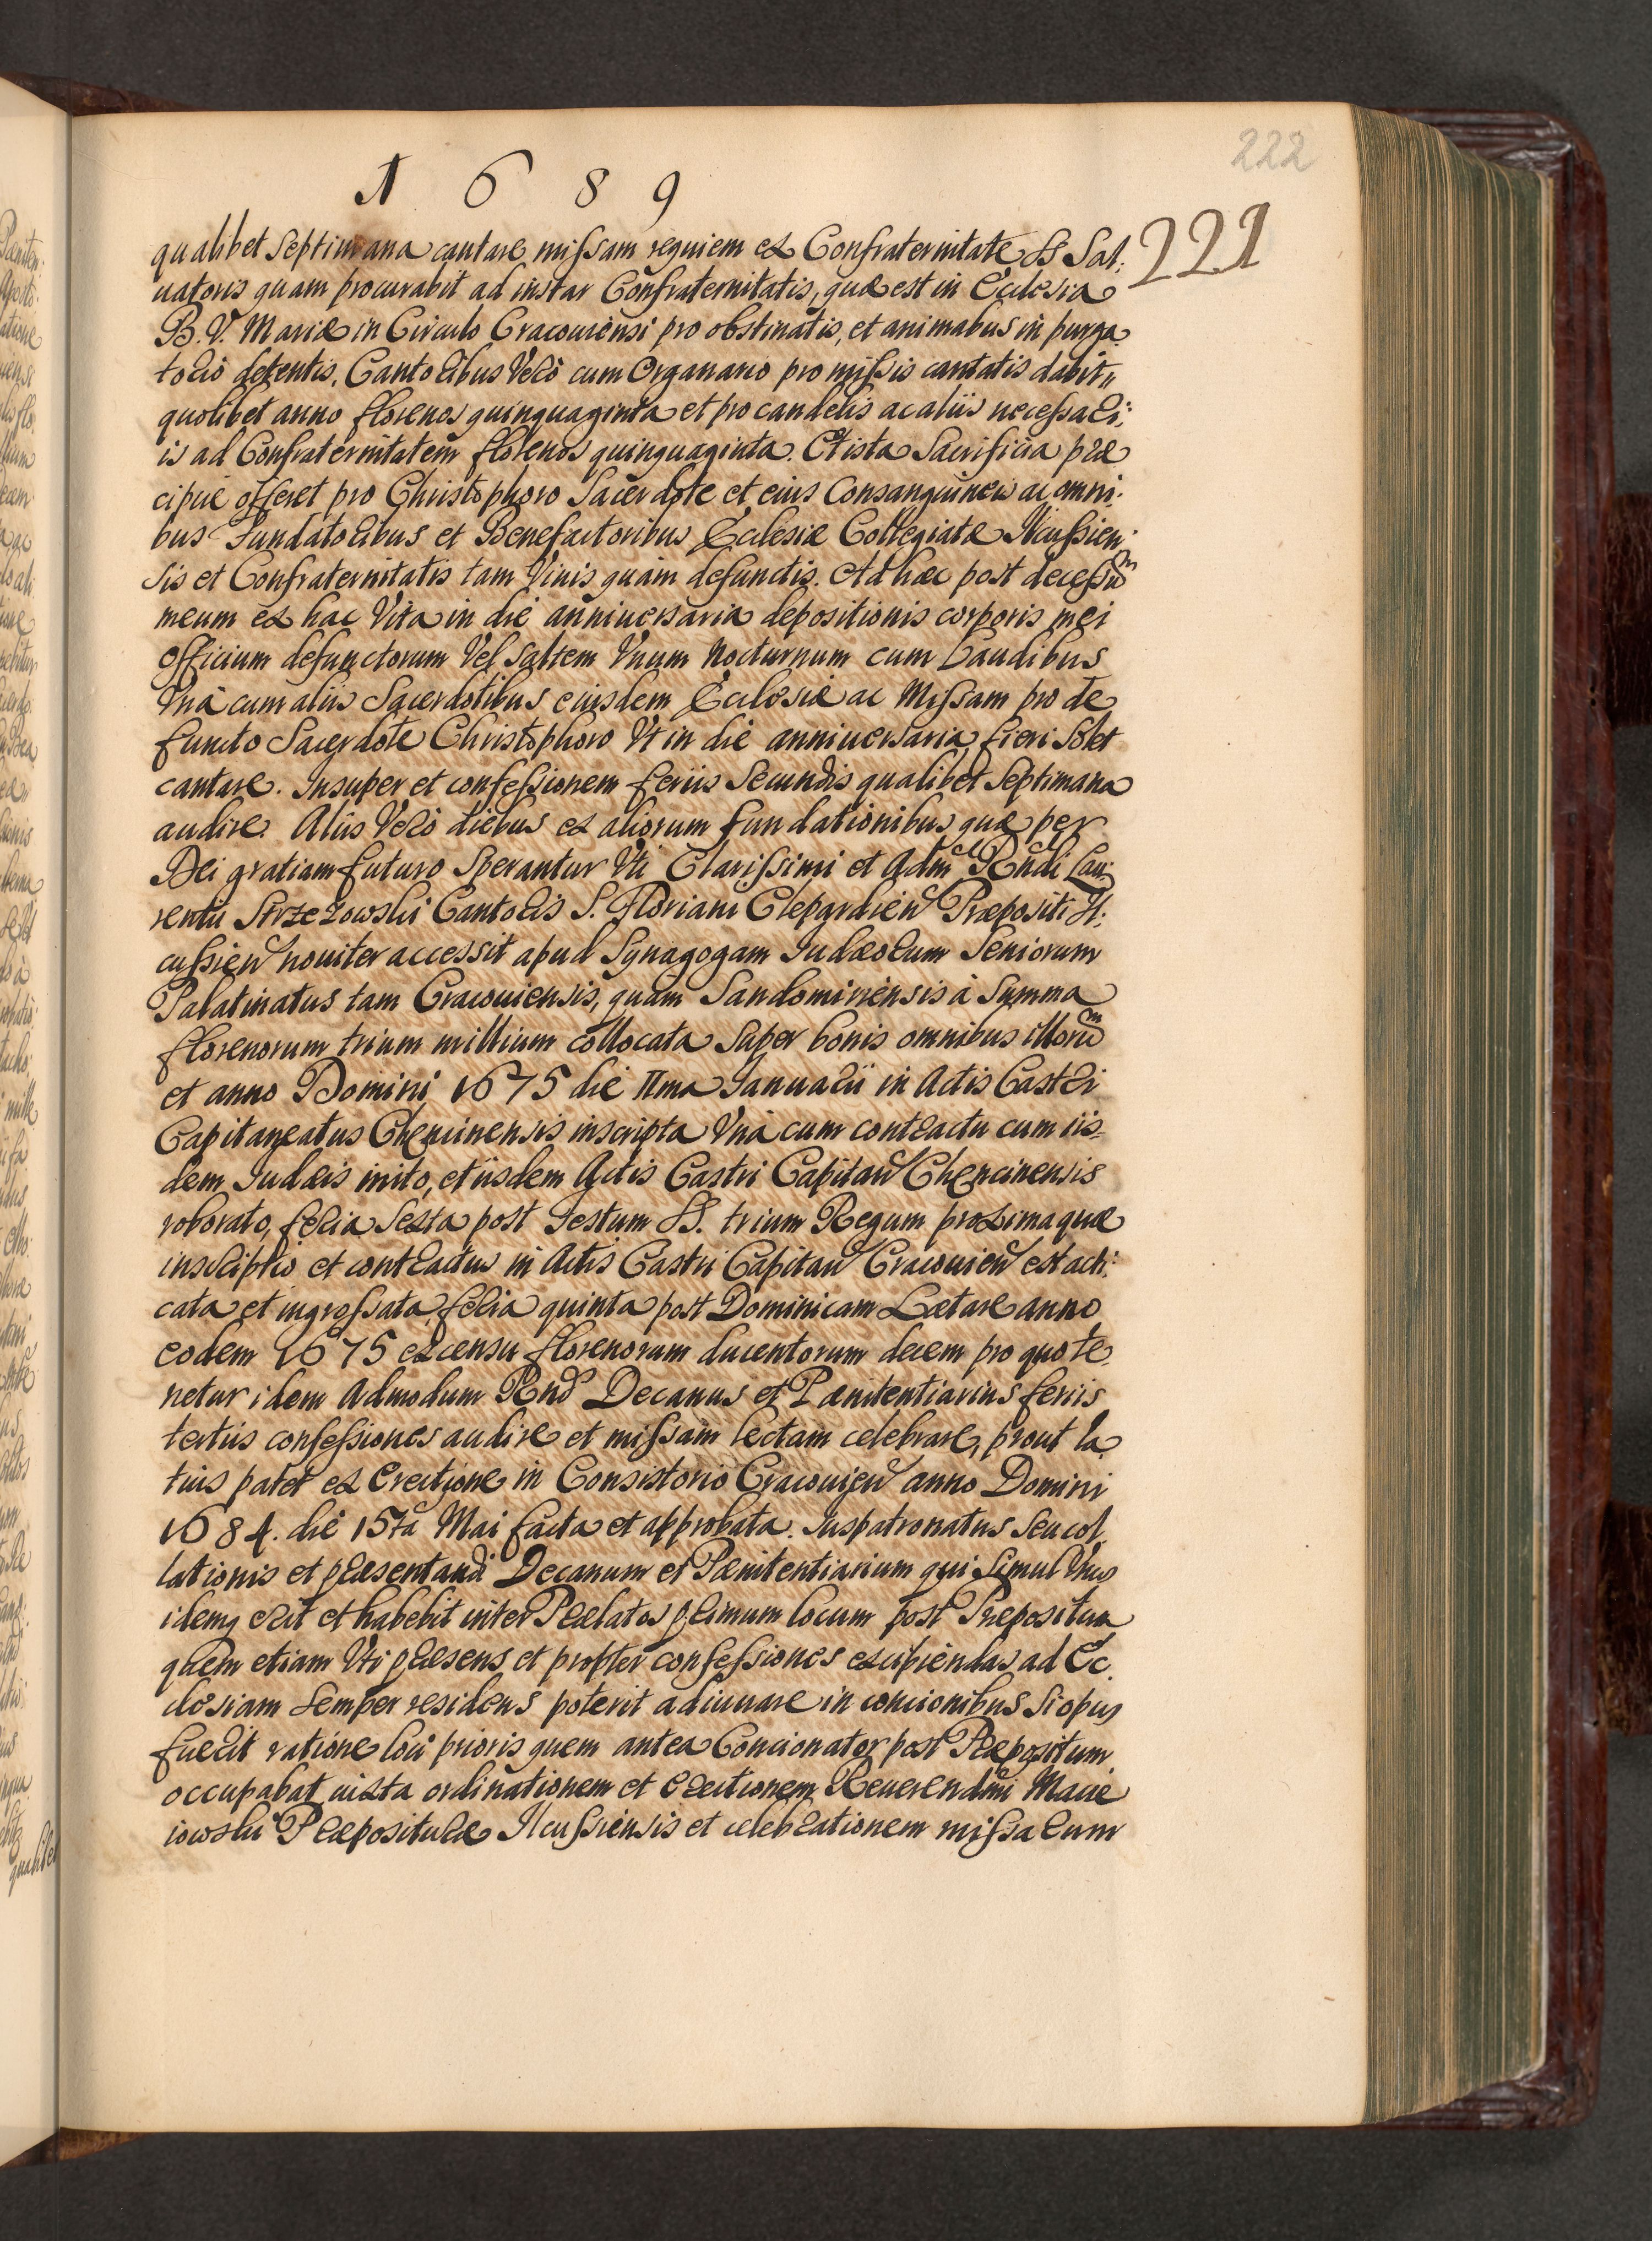 222
1 6 8 9
221
qualibet septimana cantare missam requiem ex Confraternitate SS Sal:
uatoris quam procurabit ad instar Confraternitatis, quæ est in Ecclesia
B. V. Mariæ in Circulo Cracouiensi pro obstinatis, et animabus in purga
torio detentis, Cantoribus Verò cum Organario pro missis cantatis dabit,,
quolibet anno florenos quinquaginta et pro candelis ac aliis necessari:
is ad Confraternitatem florenos quinquaginta. Et ista Sacrificia præ
cipuè offeret pro Christophoro Sacerdote et eius Consanguineis ac omni:
bus Fundatoribus et Benefactoribus Ecclesiæ Collegiatæ Ilcussien:
sis et Confraternitatis tam Viuis quàm defunctis. Ad hæc post decessũm
meum ex hac Vita in die anniuersaria depositionis corporis mei
Officium defunctorum Vel saltem Vnum Nocturnum cum Laudibus
Vnà cum aliis Sacerdotibus eiusdem Ecclesiæ ac Missam pro de
functo Sacerdote Christophoro Vt in die anniuersaria fieri Solet
cantare. Insuper et confessionem feriis Secundis qualibet Septimana
audire. Aliis Verò diebus ex aliorum fundationibus quæ per
Dei gratiam futuro Sperantur Vti Clarissimi et Adm Rndi Lau:
rentii Strzezowski Cantoris S. Floriani Clepardień Præpositi Il:
cussień nouiter accessit apud Synagogam Iudæorum Seniorum
Palatinatus tam Cracouiensis, quàm Sandomiriensis à Summa
florenorum trium millium collocata super bonis omnibus illorũm
et anno Domini 1675 die IIma Ianuarii in Actis Castri
Capitaneatus Chencinensis inscripta Vnà cum contractu cum iis:
dem Iudæis inito, et iisdem Actis Castri Capitań Chencinensis
roborato, feria Sexta post Festum SS. trium Regum proxima quæ
inscriptio et contractus in Actis Castri Capitań Cracouień est acti:
cata et ingrossata, feria quinta post Dominicam Lætare anno
eodem 1675 ex censu florenorum ducentorum decem pro quo te
netur idem Admodum Rnd Decanus et Pænitentiarius feriis
tertiis confessiones audire et missam lectam celebrare, prout la
tius patet ex Erectione in Consistorio Cracouień anno Domini
1684. die 15ta Mai facta et approbata. Iuspatronatus seu col
lationis et præsentandi Decanum et Pænitentiarium qui simul Vnus
idemq erit et habebit inter Prælatos primum locum post Præpositum
quem etiam Vti præsens et propter confessiones excipiendas ad Ec
clesiam semper residens poterit adiuuare in concionibus si opus
fuerit ratione loci prioris quem antea Concionator post Præpositum
occupabat iuxta ordinationem et Erectionem Reuerendmi Macie
iowski Præposituræ Ilcussiensis et celebrationem missarum